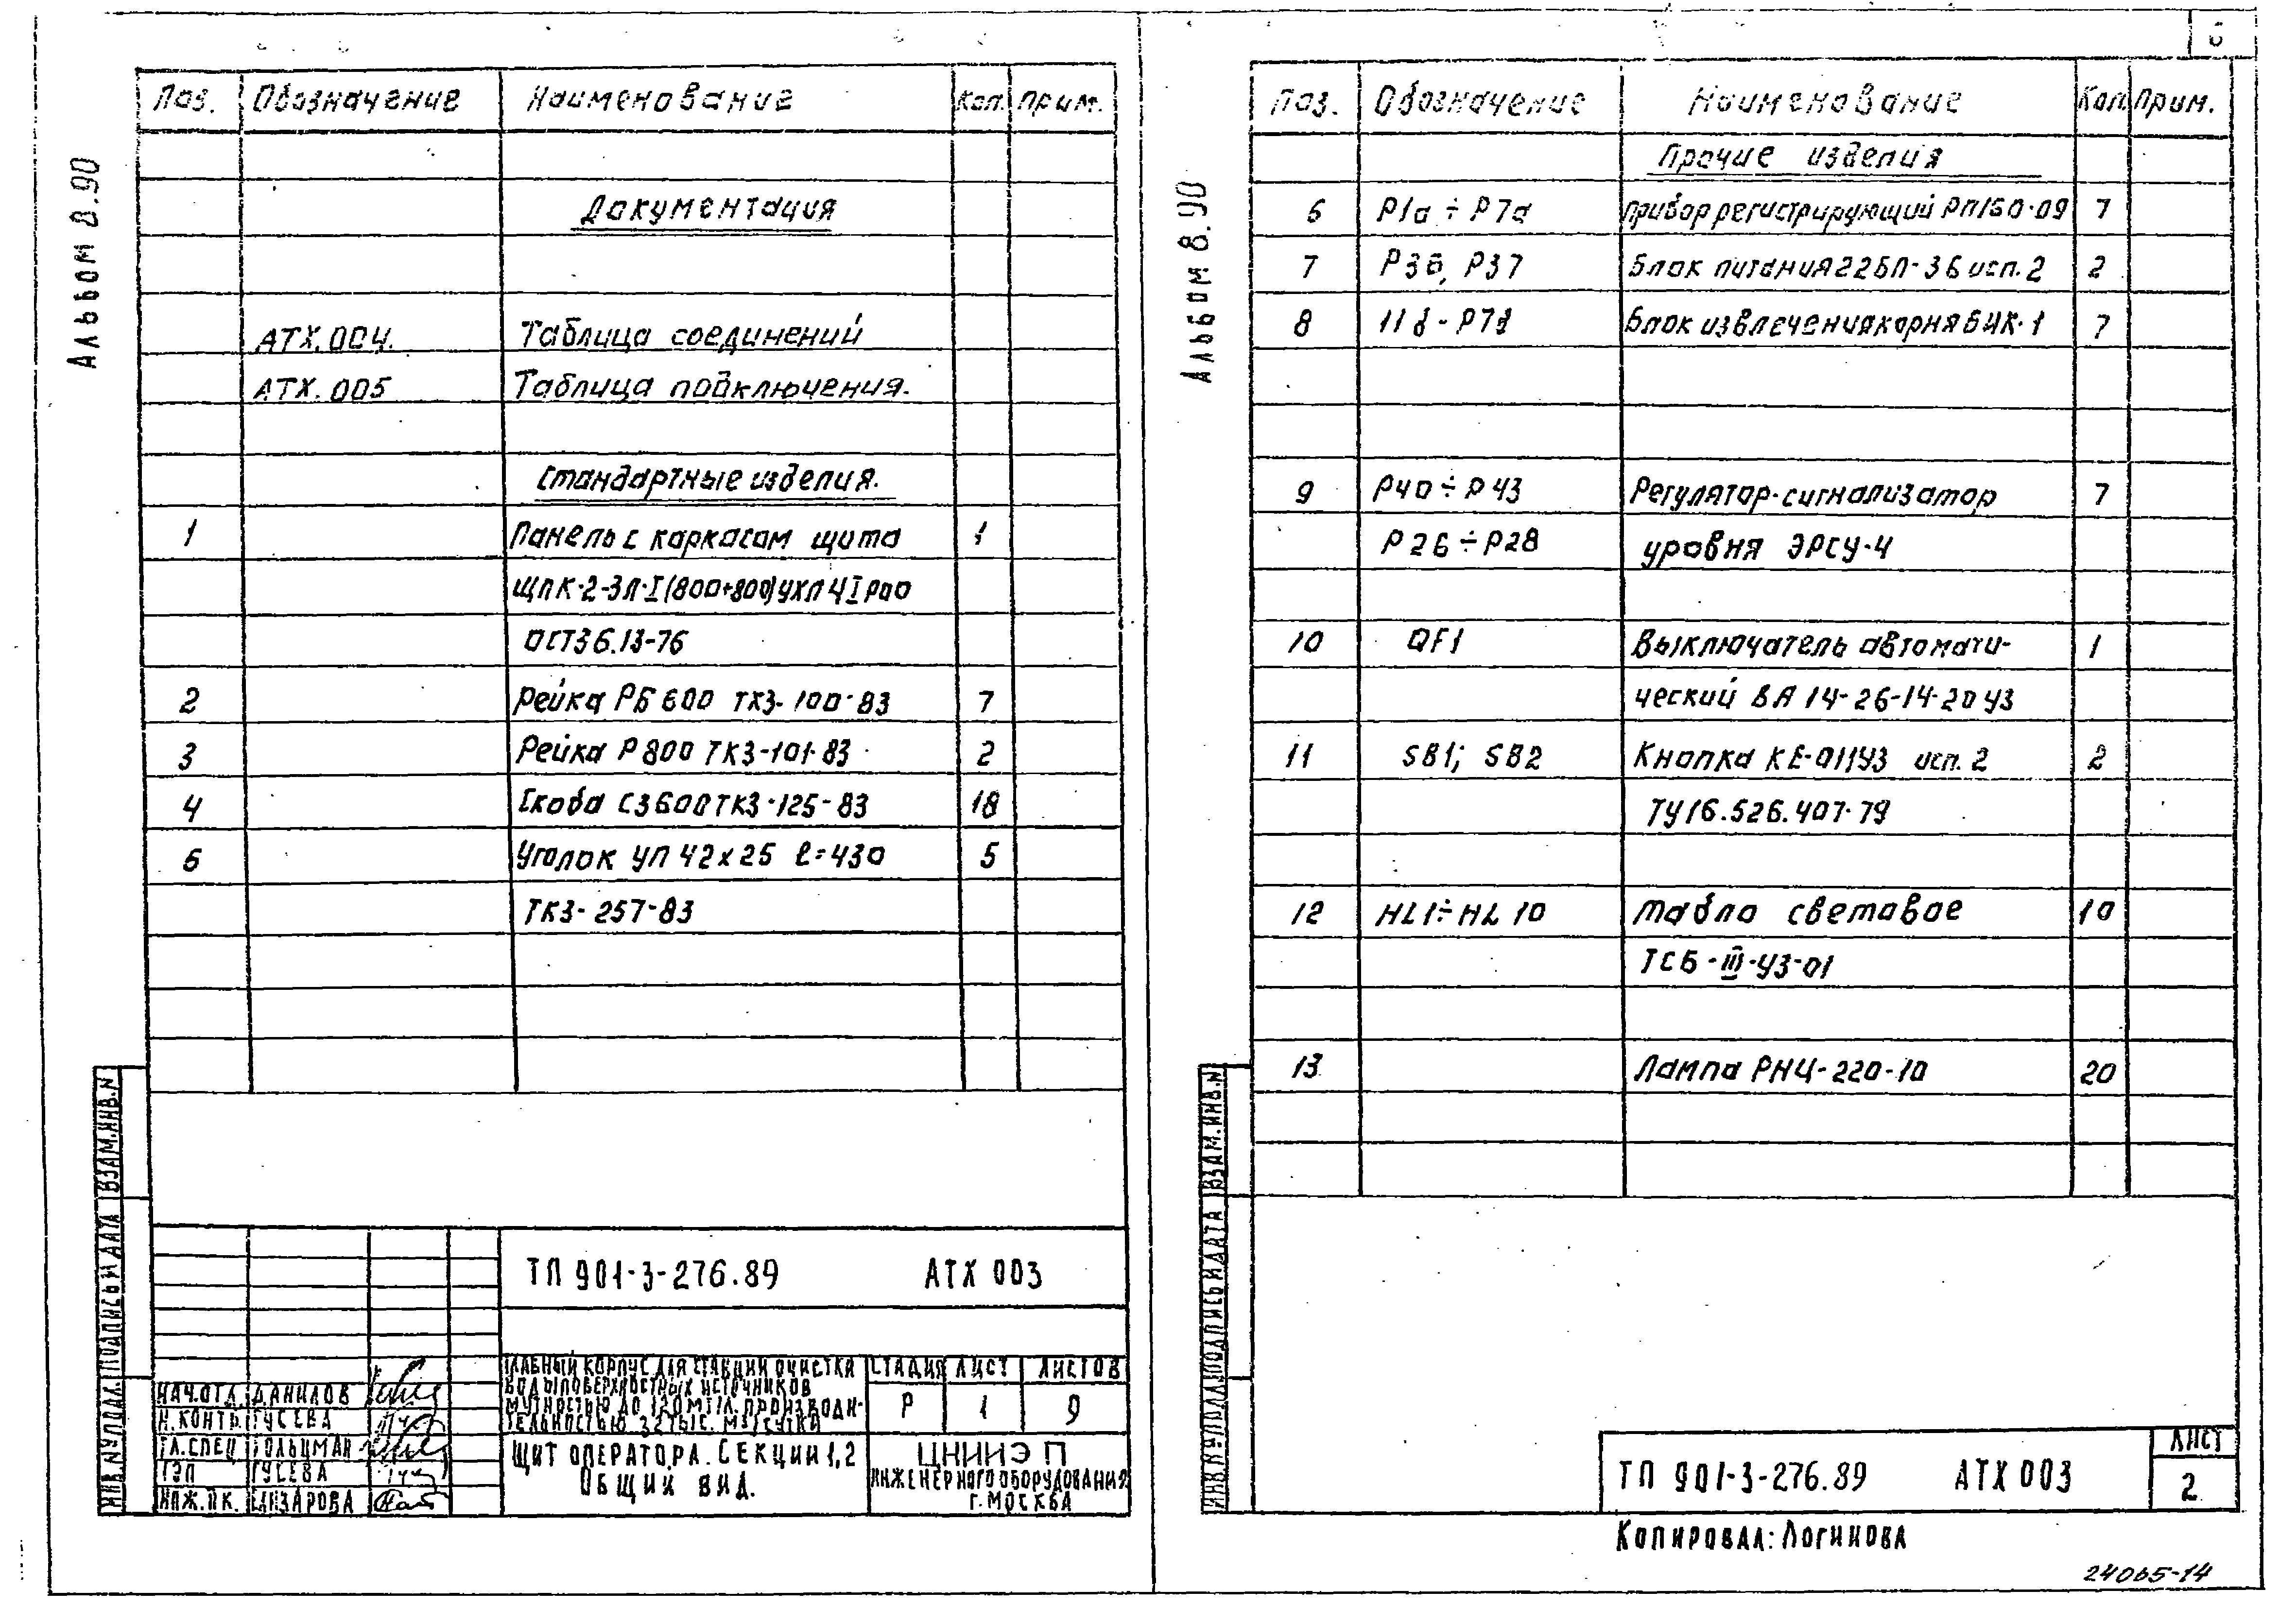 Альбом 8.90
Поз. Обозначение Наименование Кол. Прим.
Документация
АТХ.004. Таблица соединений
АТХ.005 Таблица подключения.
Стандартные изделия.
1 Панель с каркасом щита 1
ЩПК-2-ЗЛ-I(800+800)УХЛ4 IР00
ОСТ36.13-76
2 Рейка РБ600 ТКЗ-100-83 7
3 Рейка Р800 ТКЗ-101-83 2
4 Скоба СЗ600ТКЗ-125-83 18
5 Уголок УП 42х25 ℓ=430 5
ТКЗ-257-83
ТП 901-3-276.89 АТХ 003
ГЛАВНЫЙ КОРПУС ДЛЯ СТАНЦИИ ОЧИСТКИ
ВОДЫ ПОВЕРХНОСТНЫХ ИСТОЧНИКОВ
МУТНОСТЬЮ ДО 120МГ/Л. ПРОИЗВОДИ-
ТЕЛЬНОСТЬЮ 32 ТЫС. М3/СУТКИ
СТАДИЯ ЛИСТ ЛИСТОВ
Р 1 9
НАЧ.ОТД. ДАНИЛОВ
Н.КОНТР. ГУСЕВА
ГЛ.СПЕЦ ГОЛЬЦМАН
ГЭП ГУСЕВА
ИНЖ.ПК.
ЩИТ ОПЕРАТОРА. СЕКЦИИ 1,2
ОБЩИЙ ВИД.
ЦНИИЭП
ИНЖЕНЕРНОГО ОБОРУДОВАНИЯ
Г. МОСКВА
ИНВ.N ПОДЛ. ПОДПИСЬ И ДАТА ВЗАМ.ИНВ.N
6
Альбом 8.90
Поз. Обозначение Наименование Кол. Прим.
Прочие изделия
6 Р1а ÷ Р7а Прибор регистрирующий РП160-09 7
7 Р36, Р37 Блок питания 22БП-36 исп.2 2
8 Блок извлечения корня БИК-1 7
9 Р40 ÷ Р43 Регулятор-сигнализатор 7
Р26 ÷ Р28 уровня ЭРСУ-4
10 QF1 Выключатель автомати- 1
ческий ВА 14-26-14-20У3
11 SB1; SB2 Кнопка КЕ-011У3 исп.2 2
ТУ16.526.407-79
12 HL1÷HL10 Табло световое 10
ТСБ-III-У3-01
13 Лампа РНЦ-220-10 20
ИНВ.N ПОДЛ. ПОДПИСЬ И ДАТА ВЗАМ.ИНВ.N
ТП 901-3-276.89 АТХ 003
ЛИСТ
2
Копировал: Логинова
24065-14